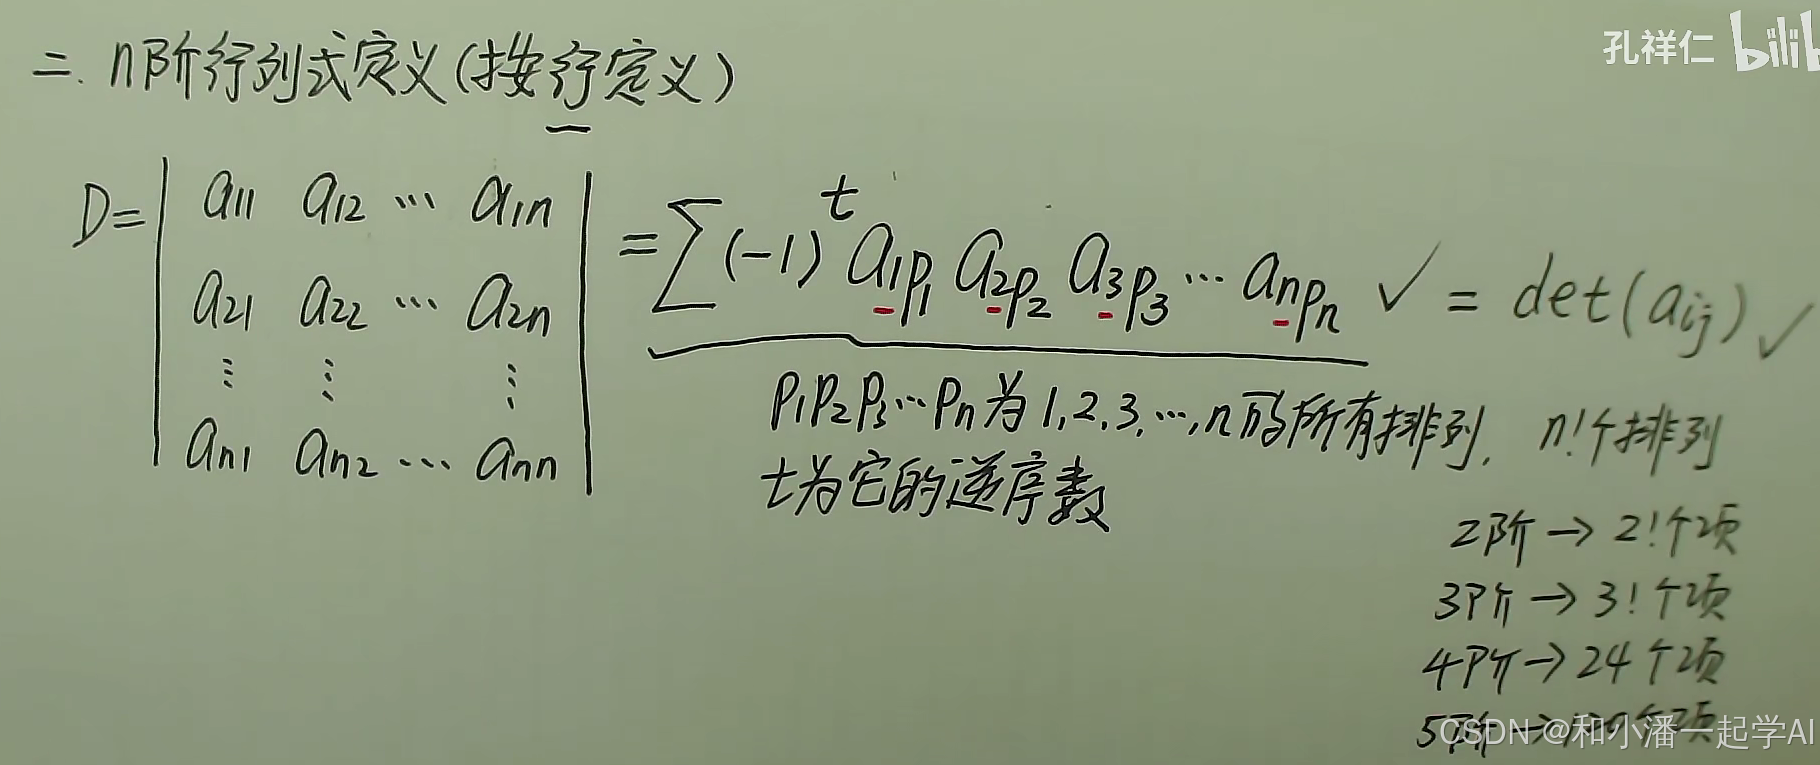 孔祥仁 bilib
二. n阶行列式定义(按行定义)
D= | a11 a12 ⋯ a1n |
| a21 a22 ⋯ a2n |
| ⋮ ⋮ ⋮ |
| an1 an2 ⋯ ann |
= ∑ (-1)^t a1p1 a2p2 a3p3 ⋯ anpn ✓ = det(aij) ✓
p1p2p3⋯pn为1,2,3,⋯,n的所有排列, n!个排列
t为它的逆序数
2阶→2!个项
3阶→3!个项
4阶→24个项
5阶→个项
CSDN @和小潘一起学AI